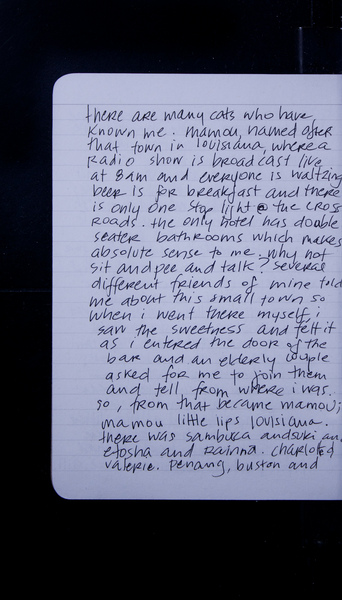 there are many cats who have
known me. mamou, named after
that town in louisiana, where a
radio show is broadcast live
at 8am and everyone is waltzing
beer is for breakfast and there
is only one stop light @ the cross
roads. the only hotel has double
seater bathrooms which makes
absolute sense to me. why not
sit and pee and talk? several
different friends of mine told
me about this small town so
when i went there myself, i
saw the sweetness and felt it
as i entered the door of the
bar and an elderly couple
asked for me to join them
and tell from where i was.
so, from that became mamou;
mamou little lips louisiana.
there was sambuca and suki an
etosha and rainna. charlotte
valerie. penang, buston and